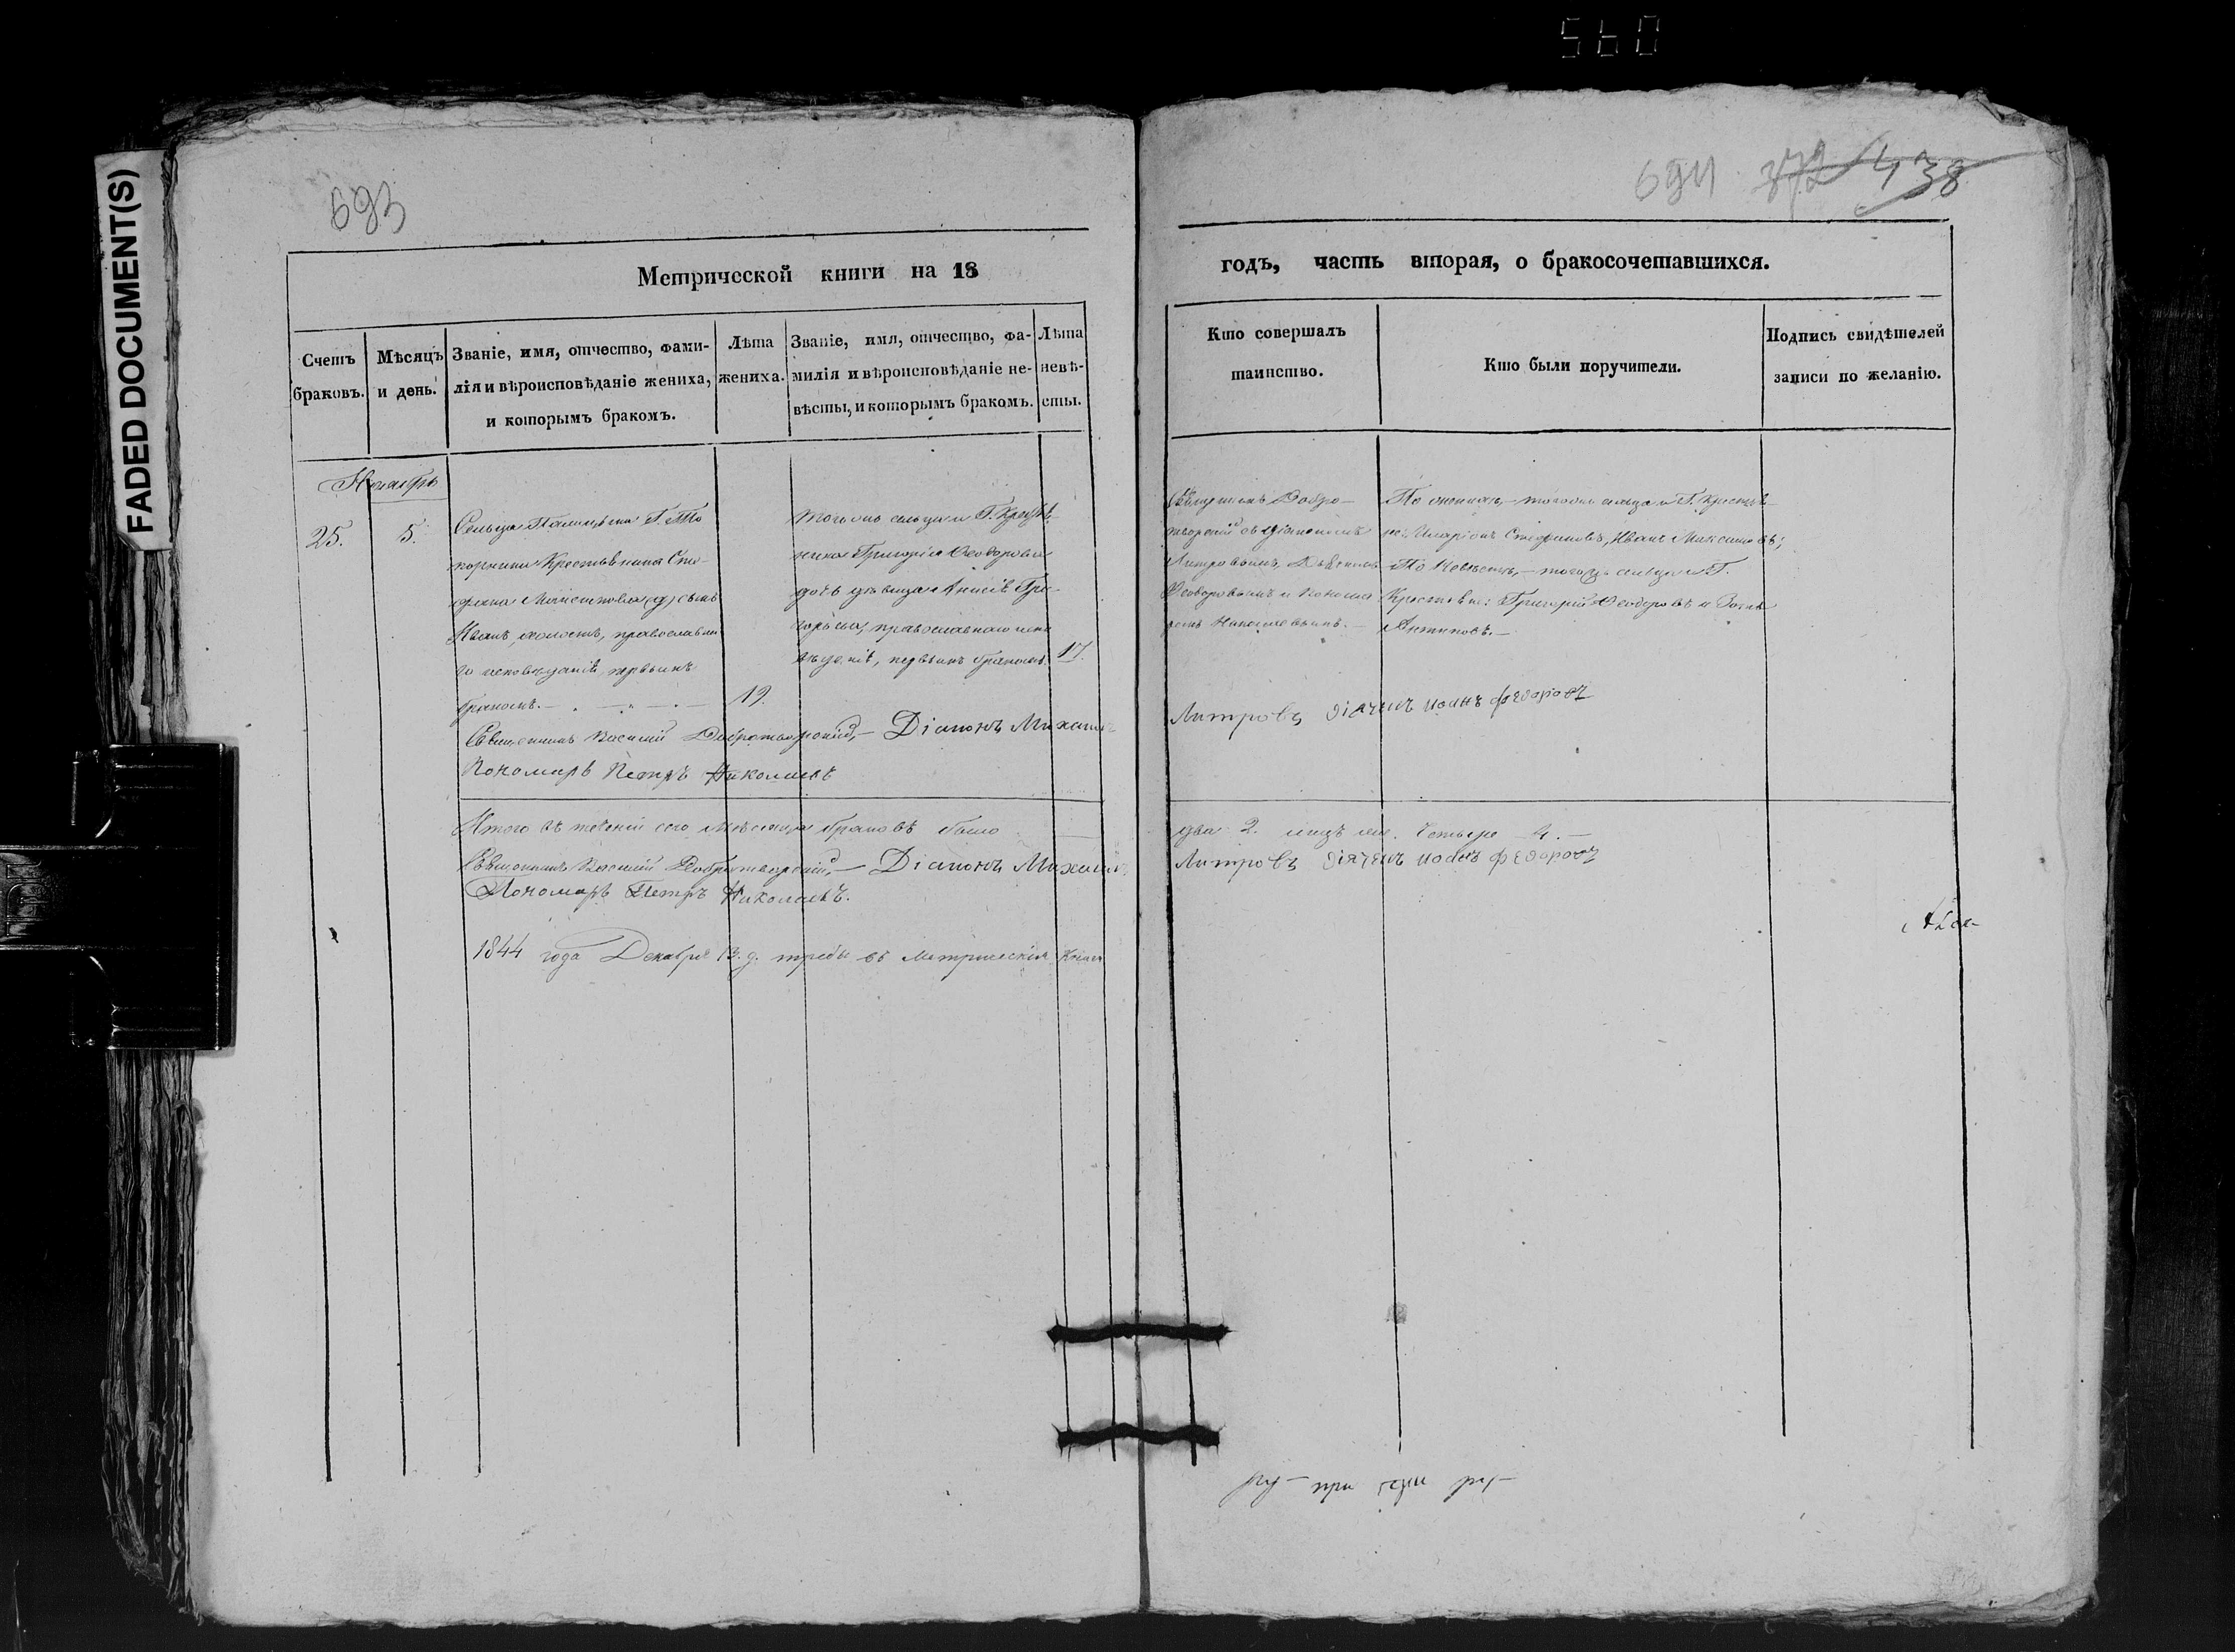 560
FADED DOCUMENT(S)
693
694 372 438
Метрической книги на 18
годъ, часть вторая, о бракосочетавшихся.
Счетъ браковъ.
Мѣсяцъ и день.
Званіе, имя, отчество, фами-
лія и вѣроисповѣданіе жениха,
и которымъ бракомъ.
Лѣта
жениха.
Званіе, имя, отчество, фа-
милія и вѣроисповѣданіе не-
вѣсты, и которымъ бракомъ.
Лѣта
невѣ-
сты.
Кто совершалъ
таинство.
Кто были поручители.
Подпись свидѣтелей
записи по желанію.
Ноябрь
25.
5.
Сельца Г.
Крестьянина Сте-
фана сынъ
Иванъ, холостъ, православна
го исповѣданія, первымъ
бракомъ.
19.
тогожъ сельца и Г. Крестья
нина Григорія Ѳеодорова
дочь дѣвица Анисія Гри-
горьева, православнаго испо
вѣданія, первымъ бракомъ.
17.
Священникъ Добро-
творскій съ Діакономъ
Митровымъ,
Ѳеодоровымъ и Понома
ремъ Николаевымъ.
По женихѣ, тогожъ сельца и Г. Крестья
не: Иларіонъ Стефановъ, Иванъ Максимовъ;
По Невѣстѣ, тогожъ сельца и Г.
Крестьяне: Григорій Ѳеодоровъ и
Антиповъ.
Священникъ Василій Добротворскій, Діаконъ Михаилъ
Митровъ діячекъ иоанъ федоровъ
Пономарь Петръ Николаевъ
Итого въ теченіи сего Мѣсяца браковъ было
два 2. лицъ четыре 4.
Священникъ Василій Добротворскій, Діаконъ Михаилъ
Митровъ діячекъ иоанъ федоровъ
Пономарь Петръ Николаевъ.
1844 года Декабря 13. д. требы въ Метрическія Книги
ру- при ру-